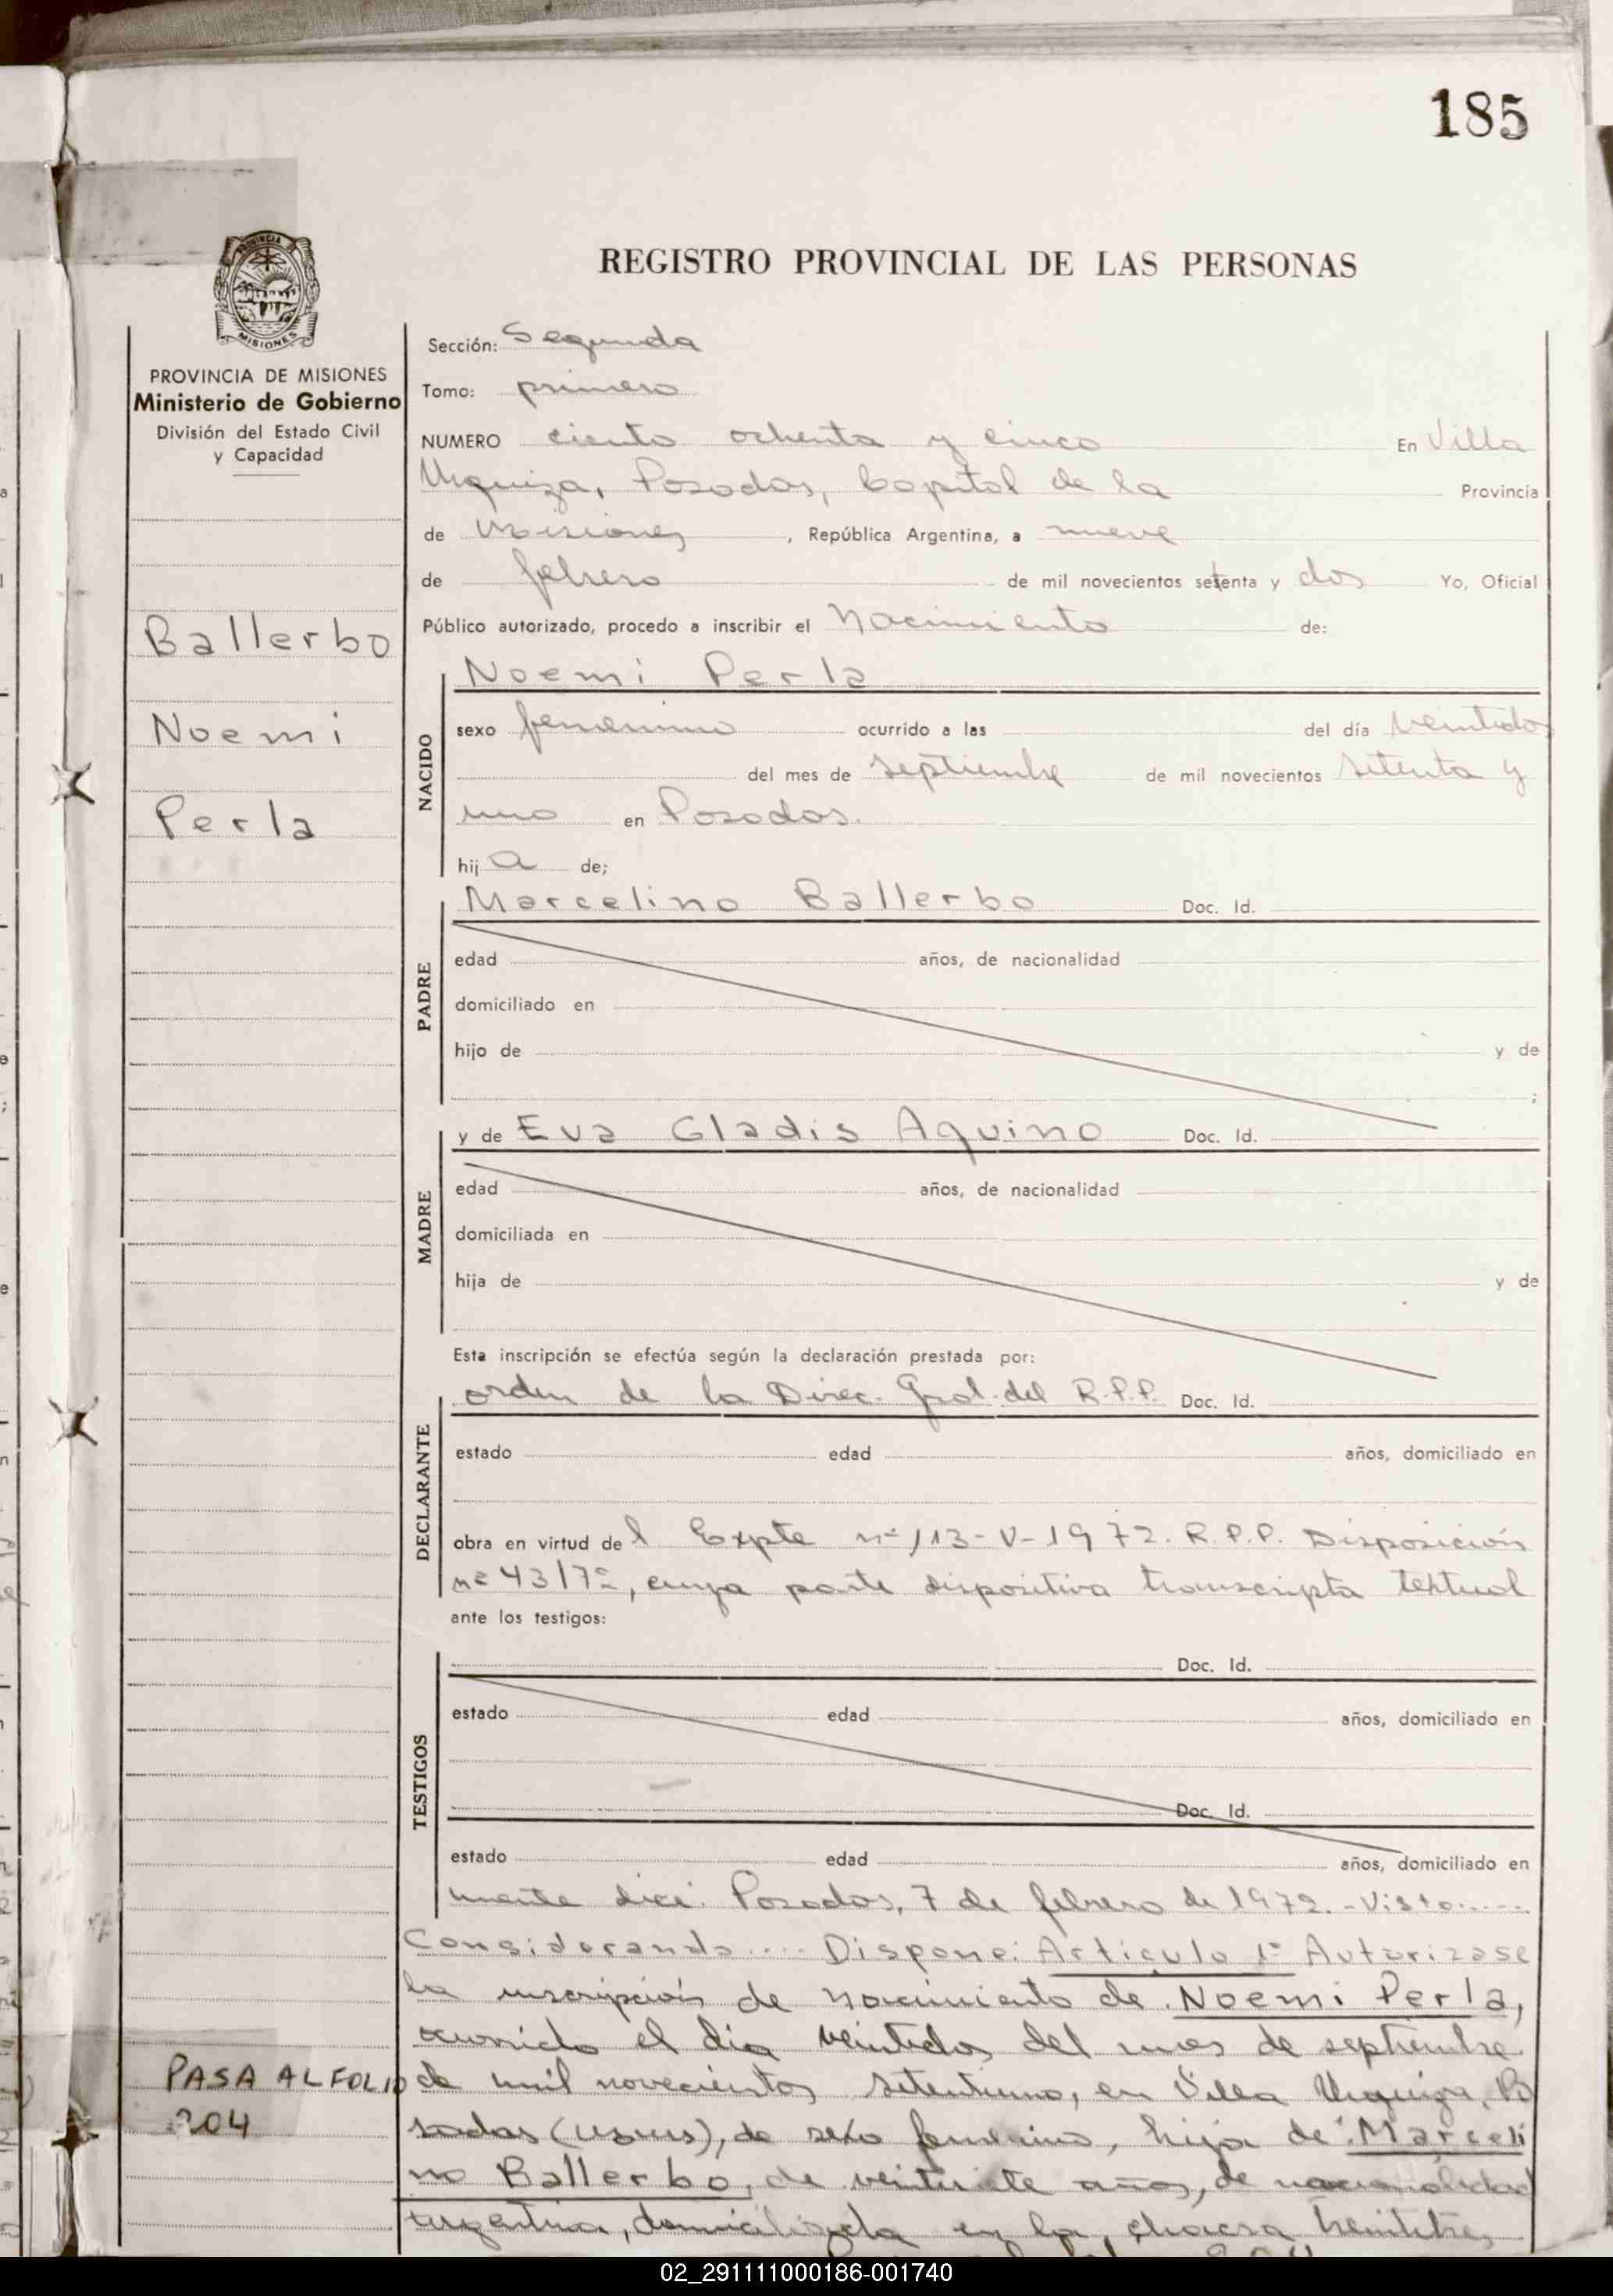 185
REGISTRO PROVINCIAL DE LAS PERSONAS
PROVINCIA
MISIONES
PROVINCIA DE MISIONES
Ministerio de Gobierno
División del Estado Civil
y Capacidad
Ballerbo
Noemi
Perla
PASA AL FOLIO
204
Sección: Segunda
Tomo: primero
NUMERO ciento ochenta y cinco En Villa
Urquiza, Posadas, Capital de la Provincia
de Misiones, República Argentina, a nueve
de febrero de mil novecientos setenta y dos Yo, Oficial
Público autorizado, procedo a inscribir el Nacimiento de:
NACIDO
Noemi Perla
sexo femenino ocurrido a las del día veintidos
del mes de septiembre de mil novecientos setenta y
uno en Posadas.
hij a de;
PADRE
Marcelino Ballerbo Doc. Id.
edad años, de nacionalidad
domiciliado en
hijo de y de
;
MADRE
y de Eva Gladis Aquino Doc. Id.
edad años, de nacionalidad
domiciliada en
hija de y de
Esta inscripción se efectúa según la declaración prestada por:
DECLARANTE
orden de la Direc. Gral. del R.P.P. Doc. Id.
estado edad años, domiciliado en
obra en virtud de l Expte nº 113-V-1972. R.P.P. Disposición
nº 43/72, cuya parte dispositiva transcripta textual
ante los testigos:
TESTIGOS
Doc. Id.
estado edad años, domiciliado en
Doc. Id.
estado edad años, domiciliado en
mente dice: Posadas, 7 de febrero de 1972.- Visto.....
Considerando.... Dispone: Articulo 1º Autorizase
la inscripción de nacimiento de Noemi Perla,
ocurrido el dia veintidos del mes de septiembre
de mil novecientos setentiuno, en Villa Urquiza, Po
sadas (), de sexo femenino, hija de: Marceli
no Ballerbo, de veintisiete años, de nacionalidad
argentina, domiciliado en la chacra treintitres
02_291111000186-001740